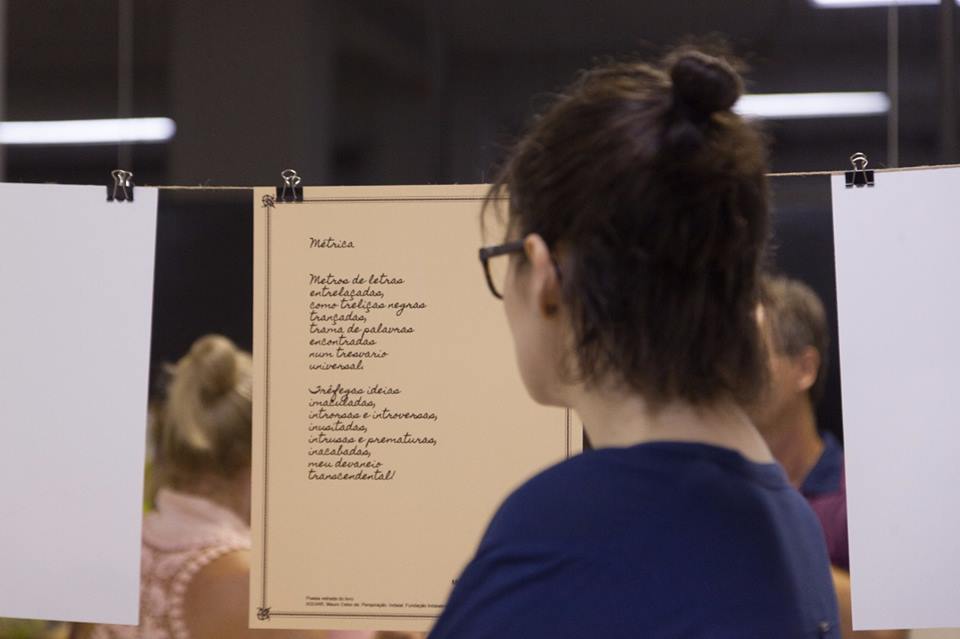 Métrica
Metros de letras
entrelaçadas,
como treliças negras
trançadas,
trama de palavras
encontradas
num tresvario
universal.
Trêfegas ideias
imaculadas,
introrsas e introversas,
inusitadas,
intrusas e prematuras,
inacabadas,
meu devaneio
transcendental!
M
Poema retirado do livro
Mauro Celso de. Perspiração. Indaial: Fundação Indaialense